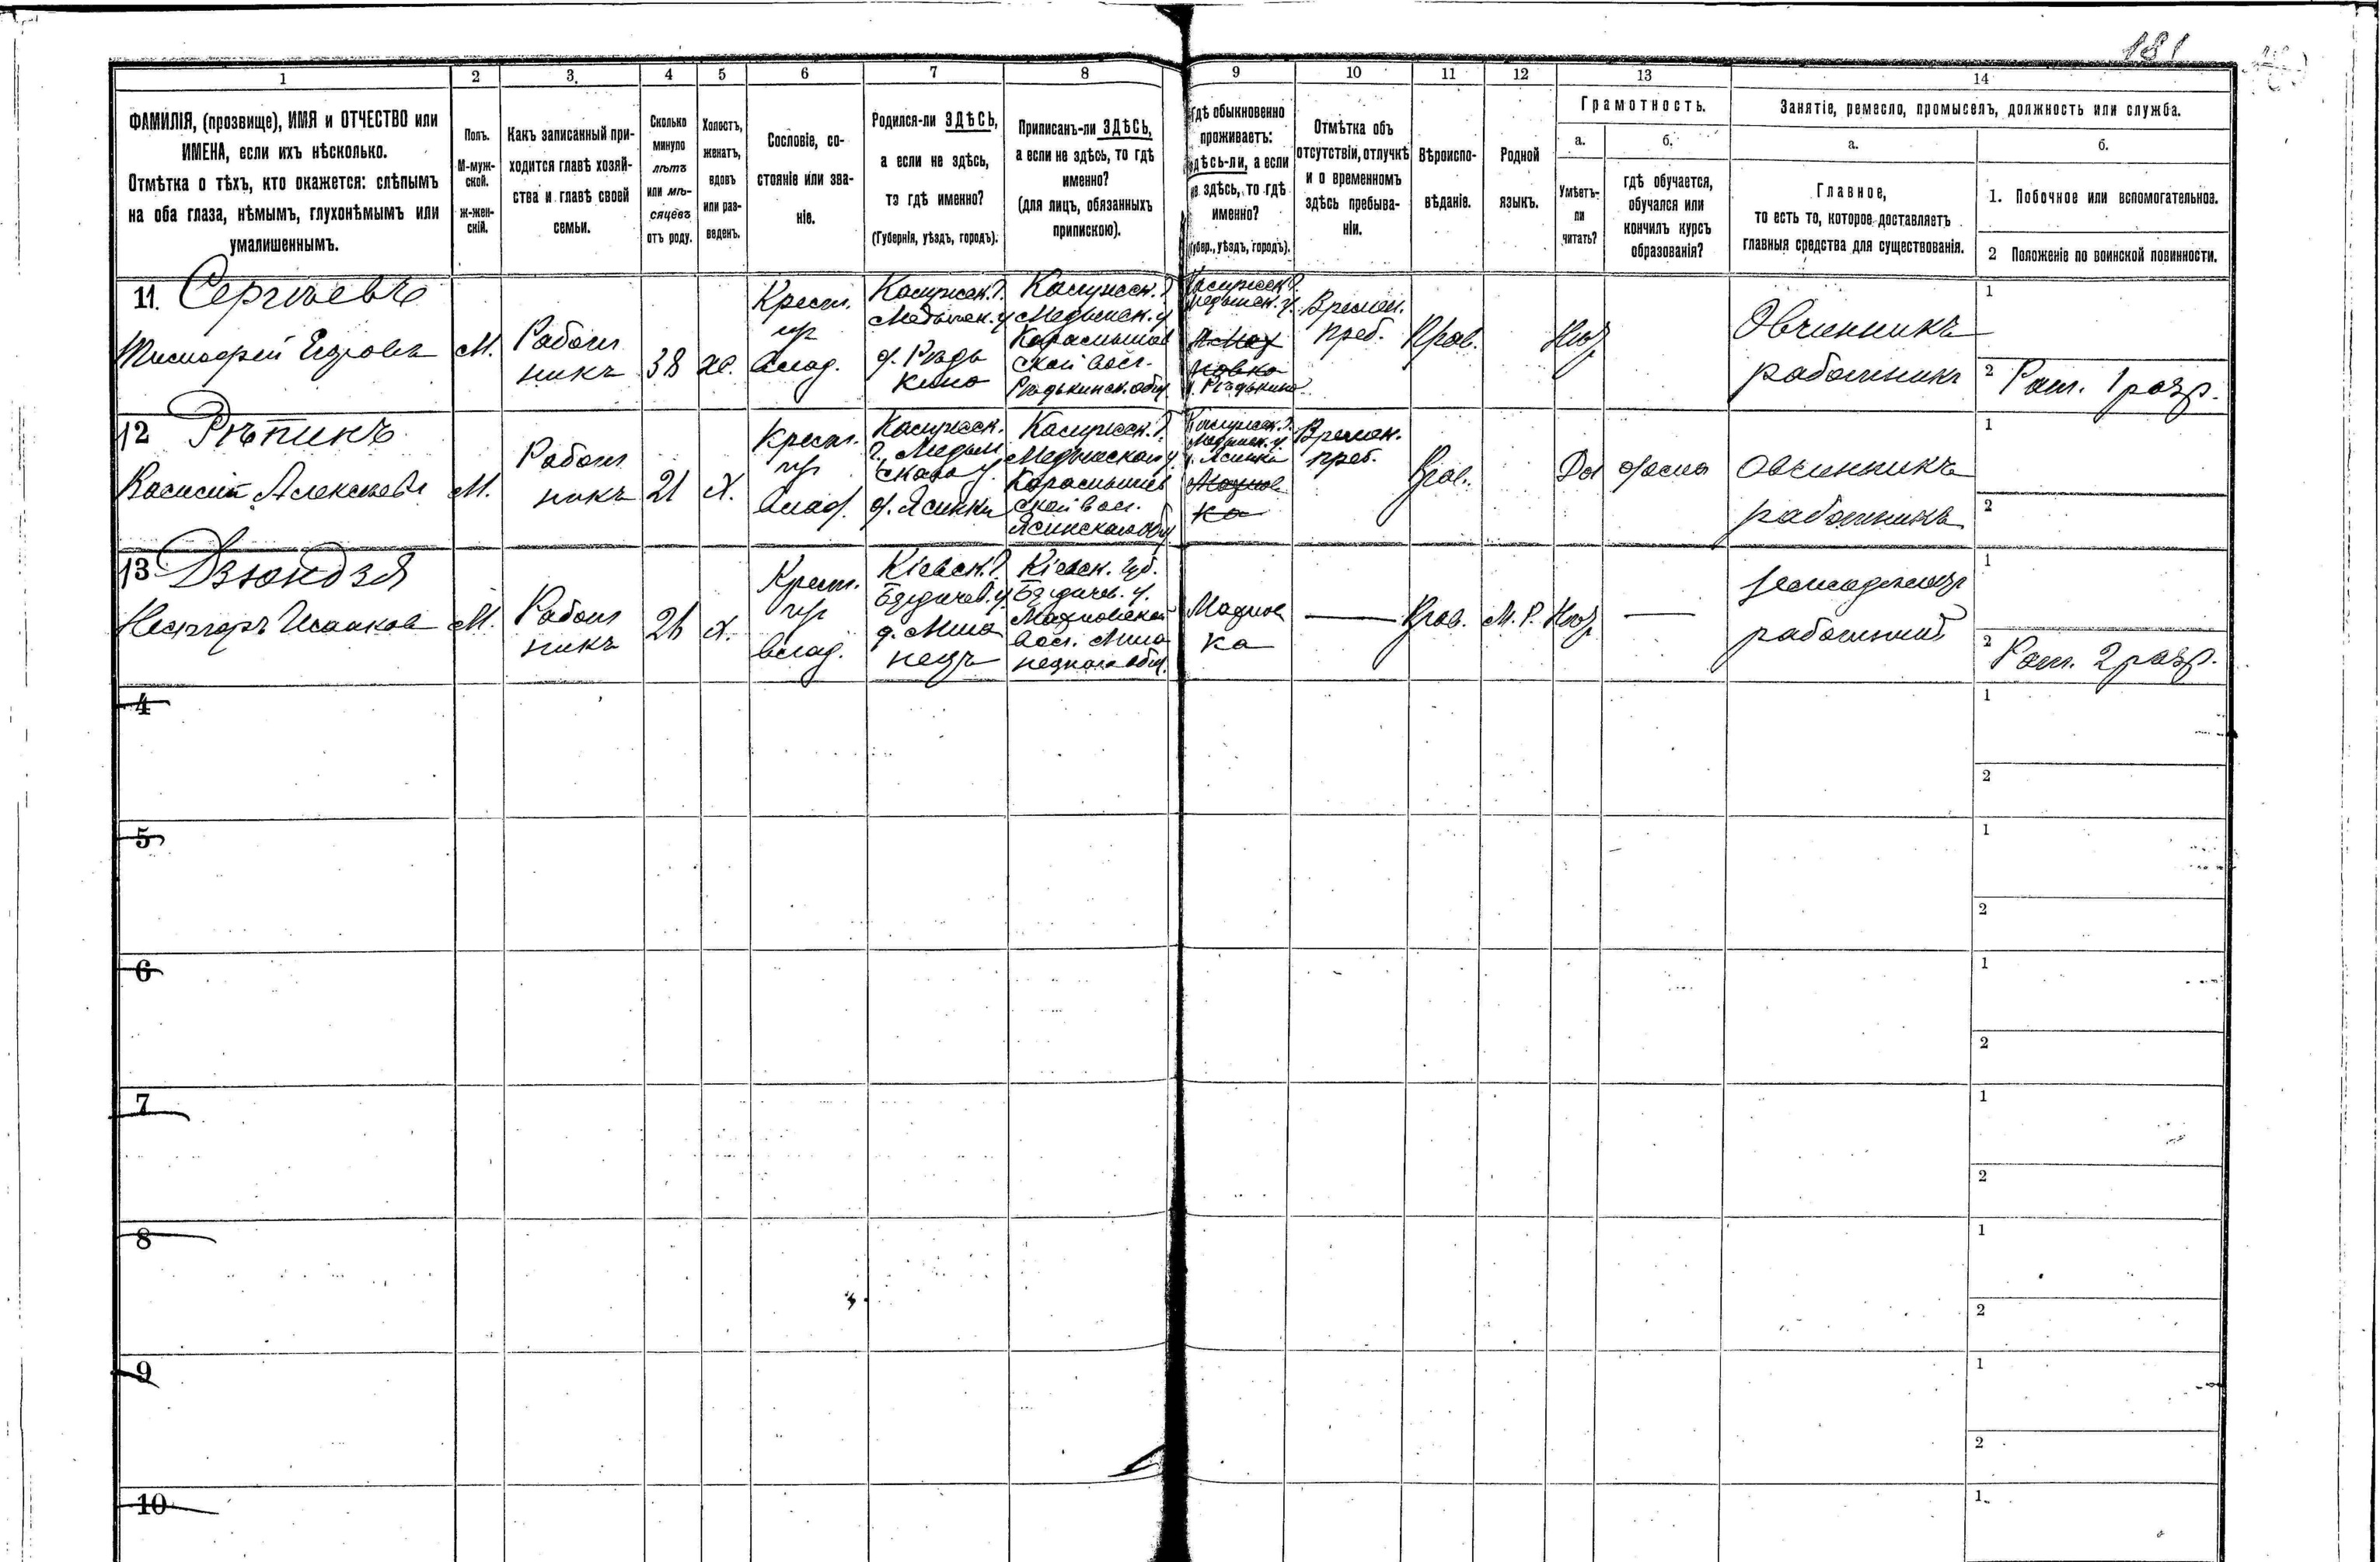 181
1 2 3. 4 5 6 7 8 9 10 11 12 13 14
ФАМИЛІЯ, (прозвище), ИМЯ и ОТЧЕСТВО или
ИМЕНА, если ихъ нѣсколько.
Отмѣтка о тѣхъ, кто окажется: слѣпымъ
на оба глаза, нѣмымъ, глухонѣмымъ или
умалишеннымъ.
Полъ.
М-муж-
ской.
ж-жен-
скій.
Какъ записанный при-
ходится главѣ хозяй-
ства и главѣ своей
семьи.
Сколько
минуло
лѣтъ
или мѣ-
сяцевъ
отъ роду.
Холостъ,
женатъ,
вдовъ
или раз-
веденъ.
Сословіе, со-
стояніе или зва-
ніе.
Родился-ли ЗДѢСЬ,
а если не здѣсь,
то гдѣ именно?
(Губернія, уѣздъ, городъ).
Приписанъ-ли ЗДѢСЬ,
а если не здѣсь, то гдѣ
именно?
(для лицъ, обязанныхъ
припискою).
гдѣ обыкновенно
проживаетъ:
здѣсь-ли, а если
не здѣсь, то гдѣ
именно?
(Губер., уѣздъ, городъ).
Отмѣтка объ
отсутствіи, отлучкѣ
и о временномъ
здѣсь пребыва-
ніи.
Вѣроиспо-
вѣданіе.
Родной
языкъ.
Грамотность.
а.
Умѣетъ-
ли
читать?
б.
гдѣ обучается,
обучался или
кончилъ курсъ
образованія?
Занятіе, ремесло, промыселъ, должность или служба.
а.
Главное,
то есть то, которое доставляетъ
главныя средства для существованія.
б.
1. Побочное или вспомогательное.
2 Положеніе по воинской повинности.
11. Сергѣевъ
Тимофей Егоровъ
М.
Работ
никъ
38
Крест.
влад.
Калужск. г.
Медынск. у
д. Рѣдь
кино
Калужск. г.
Медынск. у
Карамышев
ской вол.
Рѣдькинск. общ.
Калужск. г.
Медынск. у.
д. Рѣдькино
Времен.
преб.
Прав.
Овчинникъ
работникъ
1
2 Рат. 1 разр.
12 Рѣпинъ
Василій Алексѣевъ
М.
Работ
никъ
21
Х.
Крест.
влад.
Калужск.
г. Медын
скаго у.
д. Ясинки
Калужск. г.
Медынскаго у
Карамышев
ской вол.
Ясинскаго общ
Калужск. г.
Медынск. у
д. Ясинки
Времен.
преб.
Прав.
Да
дома
Овчинникъ
работникъ
1
2
13 Дзюндзя
Несторъ Исааковъ
М.
Работ
никъ
26
х.
Крест.
влад.
Кіевск. г.
Бердичев. у
Кіевск. губ.
Бердичев. у.
Махновской
вол.
Махнов
ка
—
Прав.
М. Р.
—
работникъ
1
2 Рат. 2 разр.
4
1
2
5
1
2
6
1
2
7
1
2
8
1
2
9
1
2
10
1.